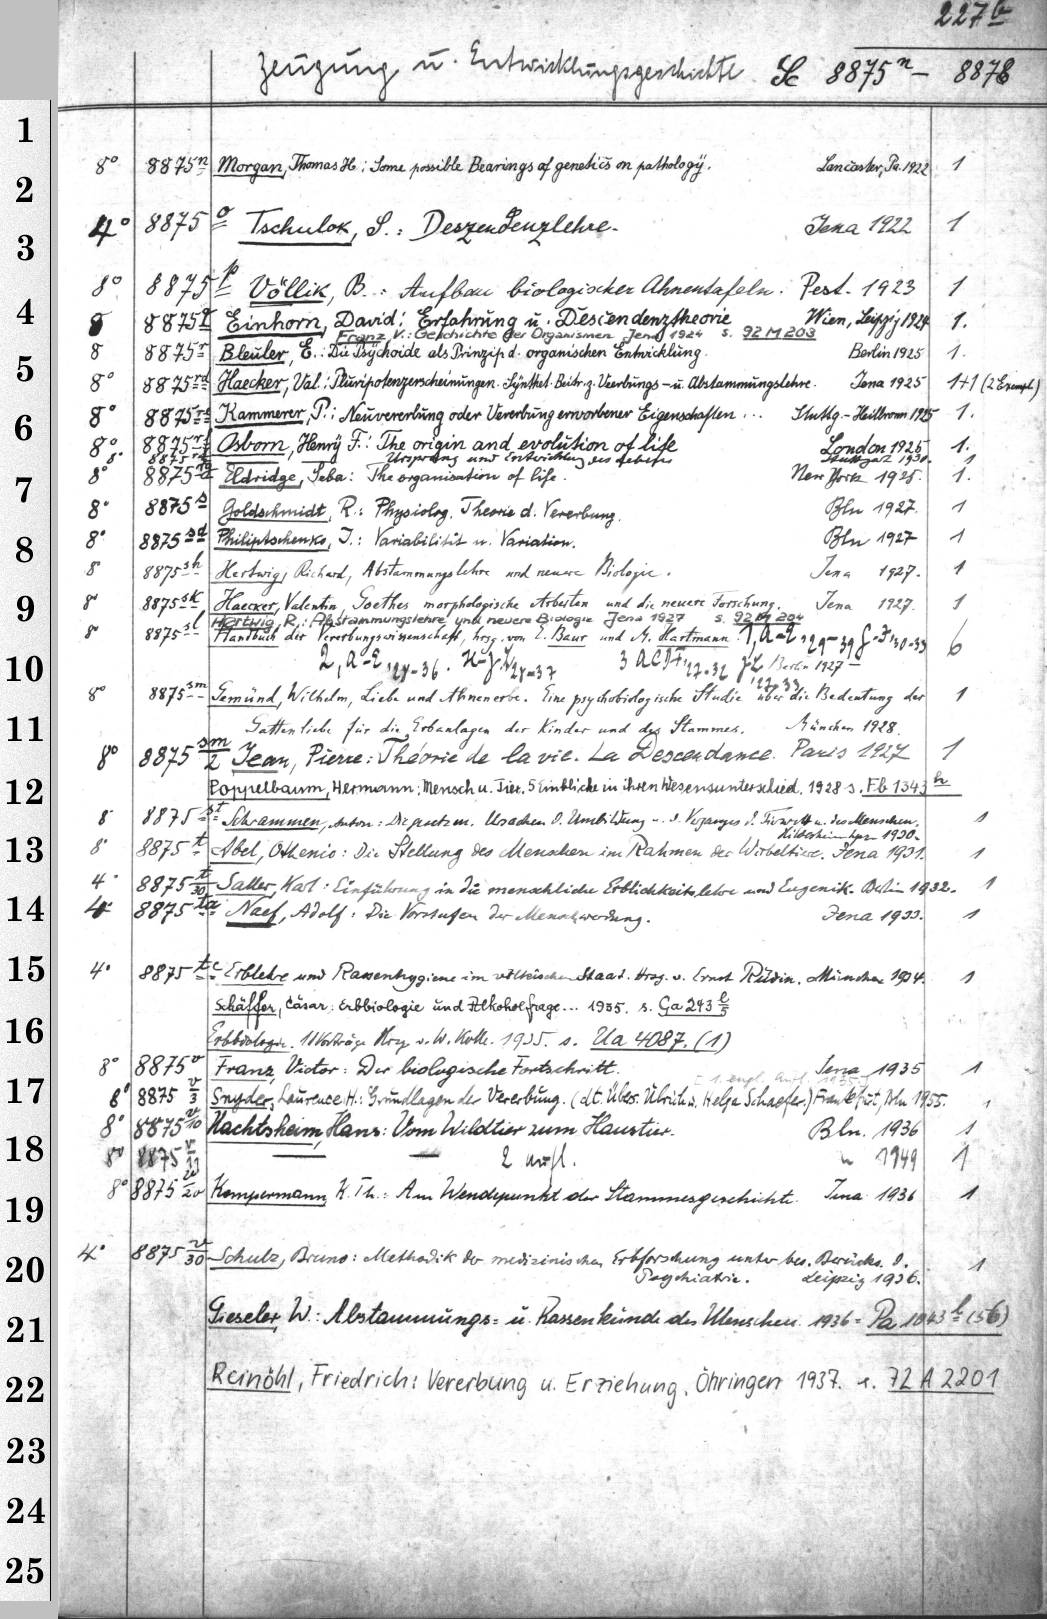 227b
Zeugung u. Entwicklungsgeschichte Sc 8875n - 8878
1
8° 8875n Morgan, Thomas H.: Some possible Bearings of genetics on pathology. Lancaster, Pa. 1922 1
2
4° 8875o Tschulok, S.: Deszendenzlehre. Jena 1922 1
3
8° 8875p Völlik, B.: Aufbau biologischer Ahnentafeln. Pest. 1923 1
4
8 8875q Einhorn, David: Erfahrung u. Descendenztheorie Wien, Leipzig 1924 1.
Franz, V.: Geschichte der Organismen Jena 1924 s. 92 M 203
8 8875r Bleuler, E.: Die Psychoide als Prinzip d. organischen Entwicklung. Berlin 1925 1.
5
8° 8875rd Haecker, Val.: Pluripotenzerscheinungen. Synthet. Beitr. z. Vererbungs- u. Abstammungslehre. Jena 1925 1+1 (2 Exempl.)
8° 8875 Kammerer, P.: Neuvererbung oder Vererbung erworbener Eigenschaften ... Stuttg.-Heilbronn 1925 1.
6
8° 8875 Osborn, Henry F.: The origin and evolution of life London 1925 1.
8° 8875 Ursprung und Entwicklung des Lebens Stuttgart 1930. 1
8° 8875 Eldridge, Seba: The organisation of life. New York 1925. 1.
7
8° 8875s Goldschmidt, R.: Physiolog. Theorie d. Vererbung. Bln 1927. 1
8° 8875sd Philiptschenko, J.: Variabilität u. Variation. Bln 1927 1
8
8° 8875sh Hertwig, Richard, Abstammungslehre und neuere Biologie. Jena 1927. 1
9
8° 8875sk Haecker, Valentin, Goethes morphologische Arbeiten und die neuere Forschung. Jena 1927. 1
Hertwig, R.: Abstammungslehre und neuere Biologie Jena 1927 s. 92 M 204
8° 8875sl Handbuch der Vererbungswissenschaft, hrsg. von E. Baur und M. Hartmann. 6
10
Berlin 1927 -
8° 8875sm Gemünd, Wilhelm, Liebe und Ahnenerbe. Eine psychobiologische Studie über die Bedeutung der 1
11
Gattenliebe für die Erbanlagen der Kinder und des Stammes. München 1928.
8° 8875sm/2 Jean, Pierre: Théorie de la vie. La Descendance. Paris 1927 1
12
Poppelbaum, Hermann: Mensch u. Tier. 5 Einblicke in ihren Wesensunterschied. 1928 s. Fb 1343h
8° 8875st Schrammen, Anton: Die Ursachen d. Umbildung d. Vorganges d. Tierwelt u. des Menschen. 1
Hildesheim 1930.
13
8° 8875t Abel, Othenio: Die Stellung des Menschen im Rahmen der Wirbeltiere. Jena 1931. 1
4° 8875t/30 Saller, Karl: Einführung in die menschliche Erblichkeitslehre und Eugenik. Berlin 1932. 1
14
4° 8875ta Naef, Adolf: Die Vorstufen der Menschwerdung. Jena 1933. 1
15
4° 8875tc Erblehre und Rassenhygiene im völkischen Staat. Hrsg. v. Ernst Rüdin. München 1934. 1
Schäffer, Cäsar: Erbbiologie und Alkoholfrage... 1935. s. Ga 243 l/5
16
Erbbiologie. 11 Vorträge Hrsg v. W. Kolle. 1935. s. Ua 4087. (1)
8° 8875v Franz, Victor: Der biologische Fortschritt. Jena 1935 1
[1. engl. Aufl. 1935]
17
8° 8875v/3 Snyder, Laurence H.: Grundlagen der Vererbung. (dt. Übers. Ulrich u. Helga Schaefer.) Frankfurt, Bln 1955. 1
8° 8875v/10 Nachtsheim, Hans: Vom Wildtier zum Haustier. Bln. 1936 1
18
8° 8875v/11 — — 2 Aufl. " 1949 1
8° 8875v/20 Kempermann K. Th.: Am Wendepunkt der Stammesgeschichte. Jena 1936 1
19
4° 8875v/30 Schulz, Bruno: Methodik der medizinischen Erbforschung unter bes. Berücks. d. 1
20
Psychiatrie. Leipzig 1936.
21
Gieseler, W.: Abstammungs= u. Rassenkunde des Menschen. 1936 = Pa 1043h (56)
22
Reinöhl, Friedrich: Vererbung u. Erziehung. Öhringen 1937. s. 72 A 2201
23
24
25